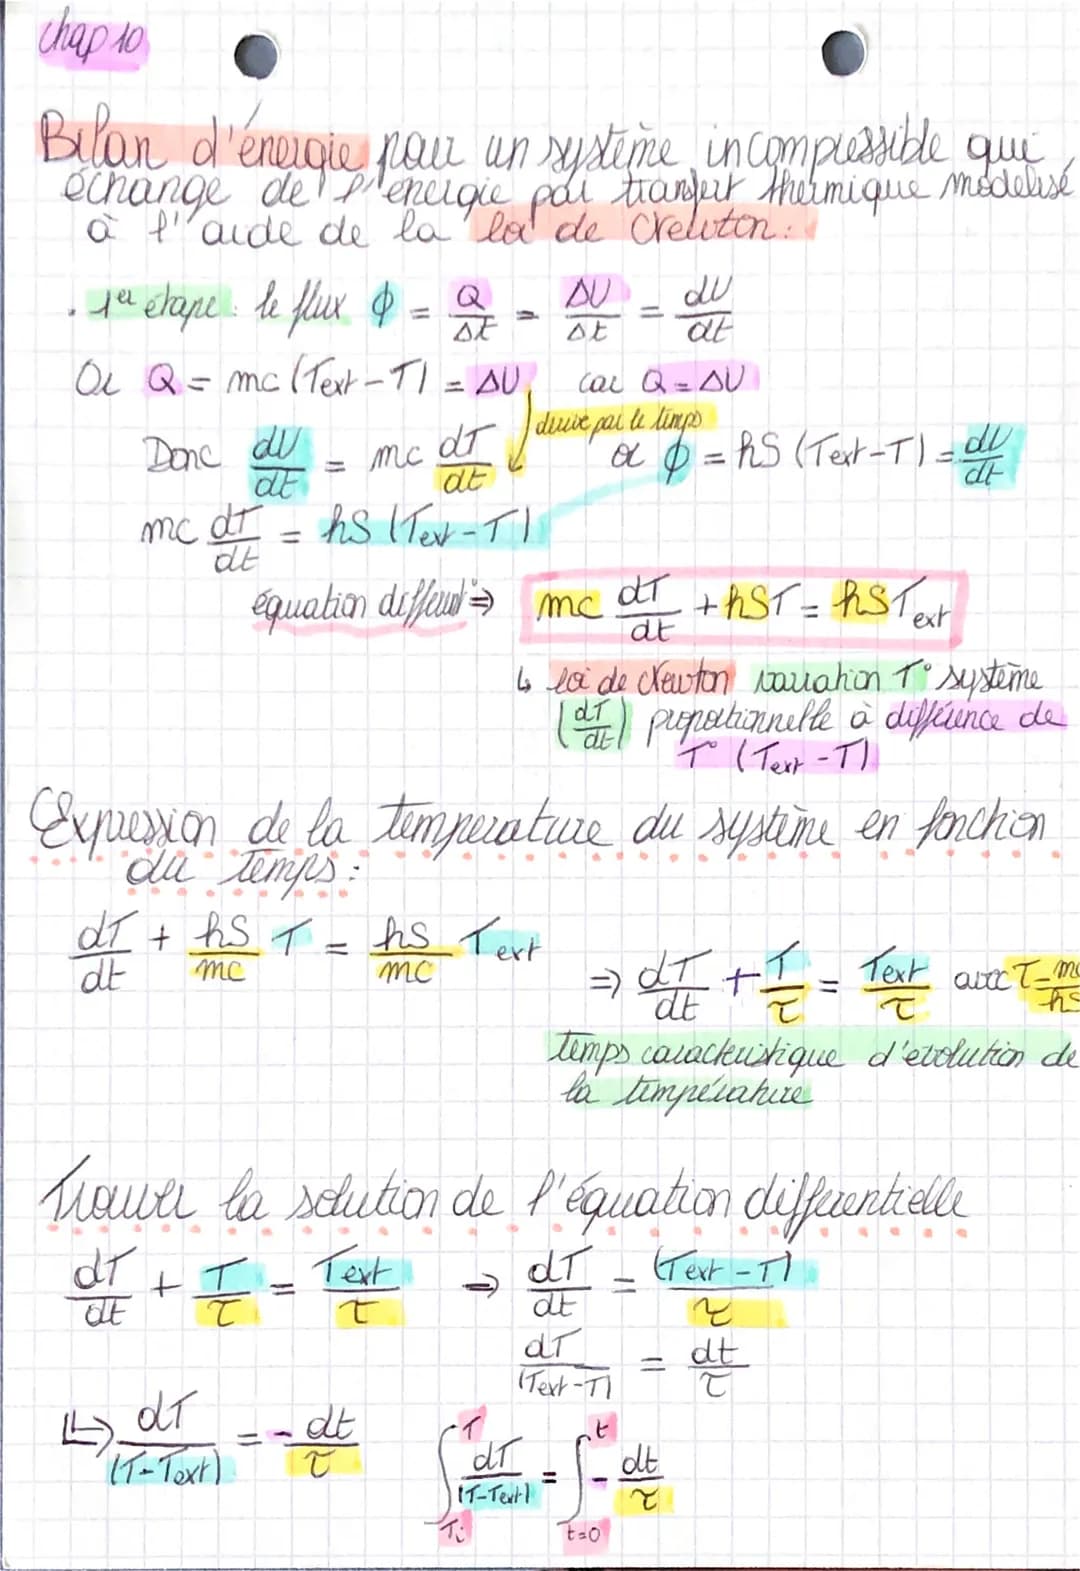 chap 10
Bilan d'énergie pour un système incompressible qui
échange de l'énergie par transfert thermique modélisé
à l'aide de la loi de Newton :
. 1er étape : le flux ϕ = Q/Δt = ΔU/Δt = dU/dt
Or Q = mc (Text - T) = ΔU car Q = ΔU
dérive par le temps
Donc dU/dt = mc dT/dt or ϕ = hS (Text - T) = dU/dt
mc dT/dt = hS (Text - T)
équation différent ⇒ mc dT/dt + hST = hS Text
↳ loi de Newton variation T° système
(dT/dt) proportionnelle à différence de
T° (Text - T)
Expression de la température du système en fonction
du temps :
dT/dt + hS/mc T = hS/mc Text
⇒ dT/dt + T/τ = Text/τ avec τ = mc/hS
temps caractéristique d'évolution de
la température
Trouver la solution de l'équation différentielle
dT/dt + T/τ = Text/τ ⇒ dT/dt = (Text - T)/τ
dT/(Text - T) = dt/τ
↳ dT/(T - Text) = - dt/τ ∫Ti^T dT/(T - Text) = ∫t=0^t - dt/τ